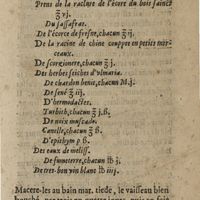 Prens de la racluré de l'écore du bois sainct
ʒ vj.
Du sassafras.
De l'écorce de fresne, chacun ʒ ij.
De la racine de chine couppee en petis mor-
ceaux.
De scorçonere, chacun ʒ j.
Des herbes seiches d'vlmaria.
De chardon benit, chacun M. j.
De sené ℥ iij.
D'hermodactes.
Turbith, chacun ʒ ß.
De noix muscade.
Canelle, chacun ʒ ß.
D'epithym p ß.
Des eaux de meliss.
De fumeterre, chacun ℔ j.
De tres-bon vin blanc ℔ iiij.
Macere-les au bain mar. tiede, le vaisseau bien
bouché, par trois ou quatre iours, puis en fais